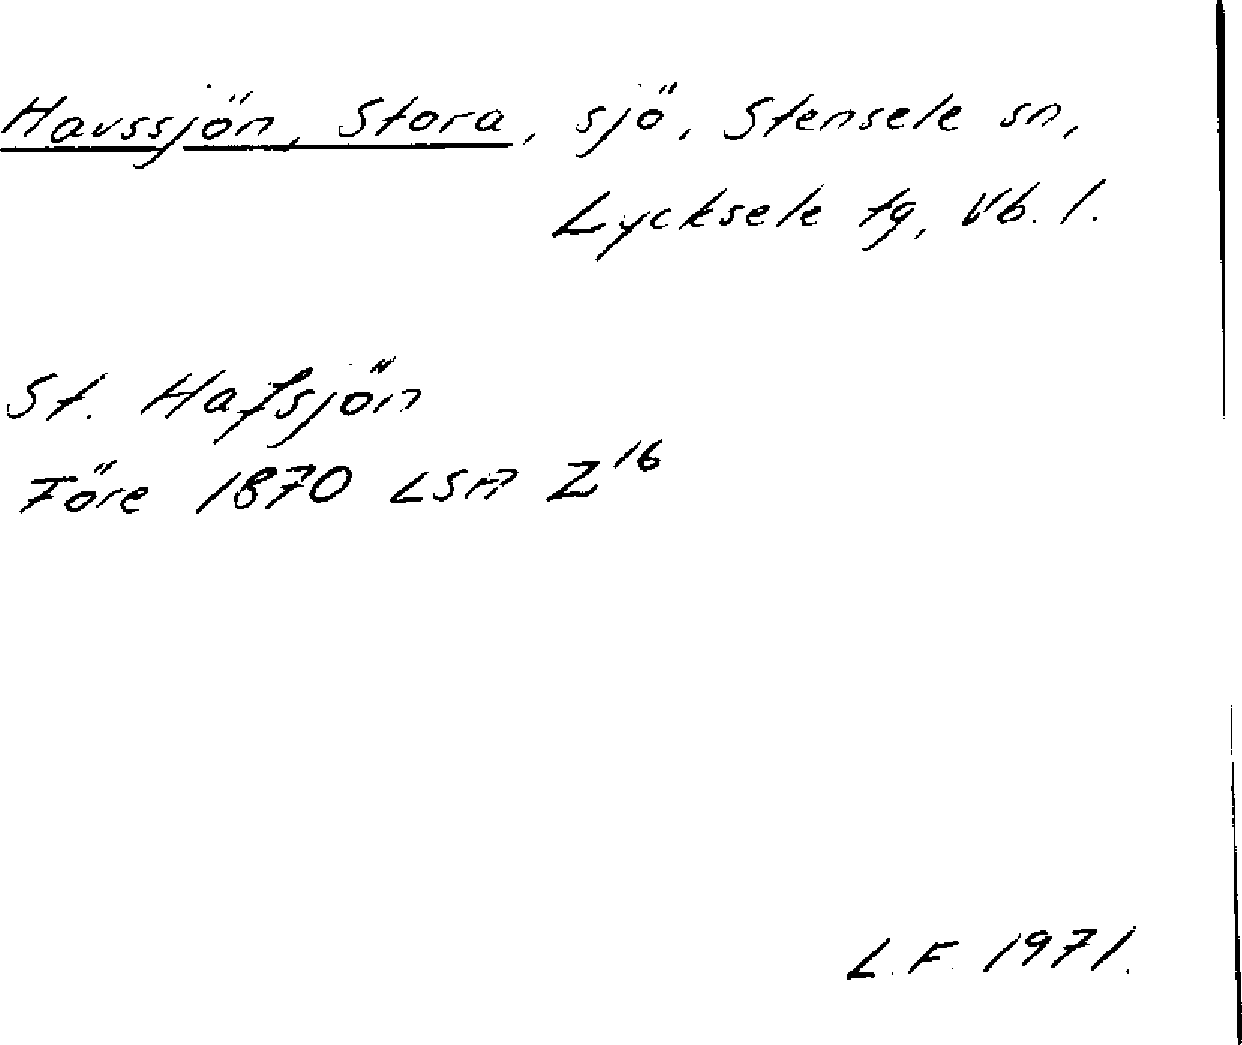 Havssjön, Stora, sjö, Stensele sn,
Lycksele tg, Vb. l.
St. Hafsjön
Före 1870 LSA Z16
L.F. 1971.